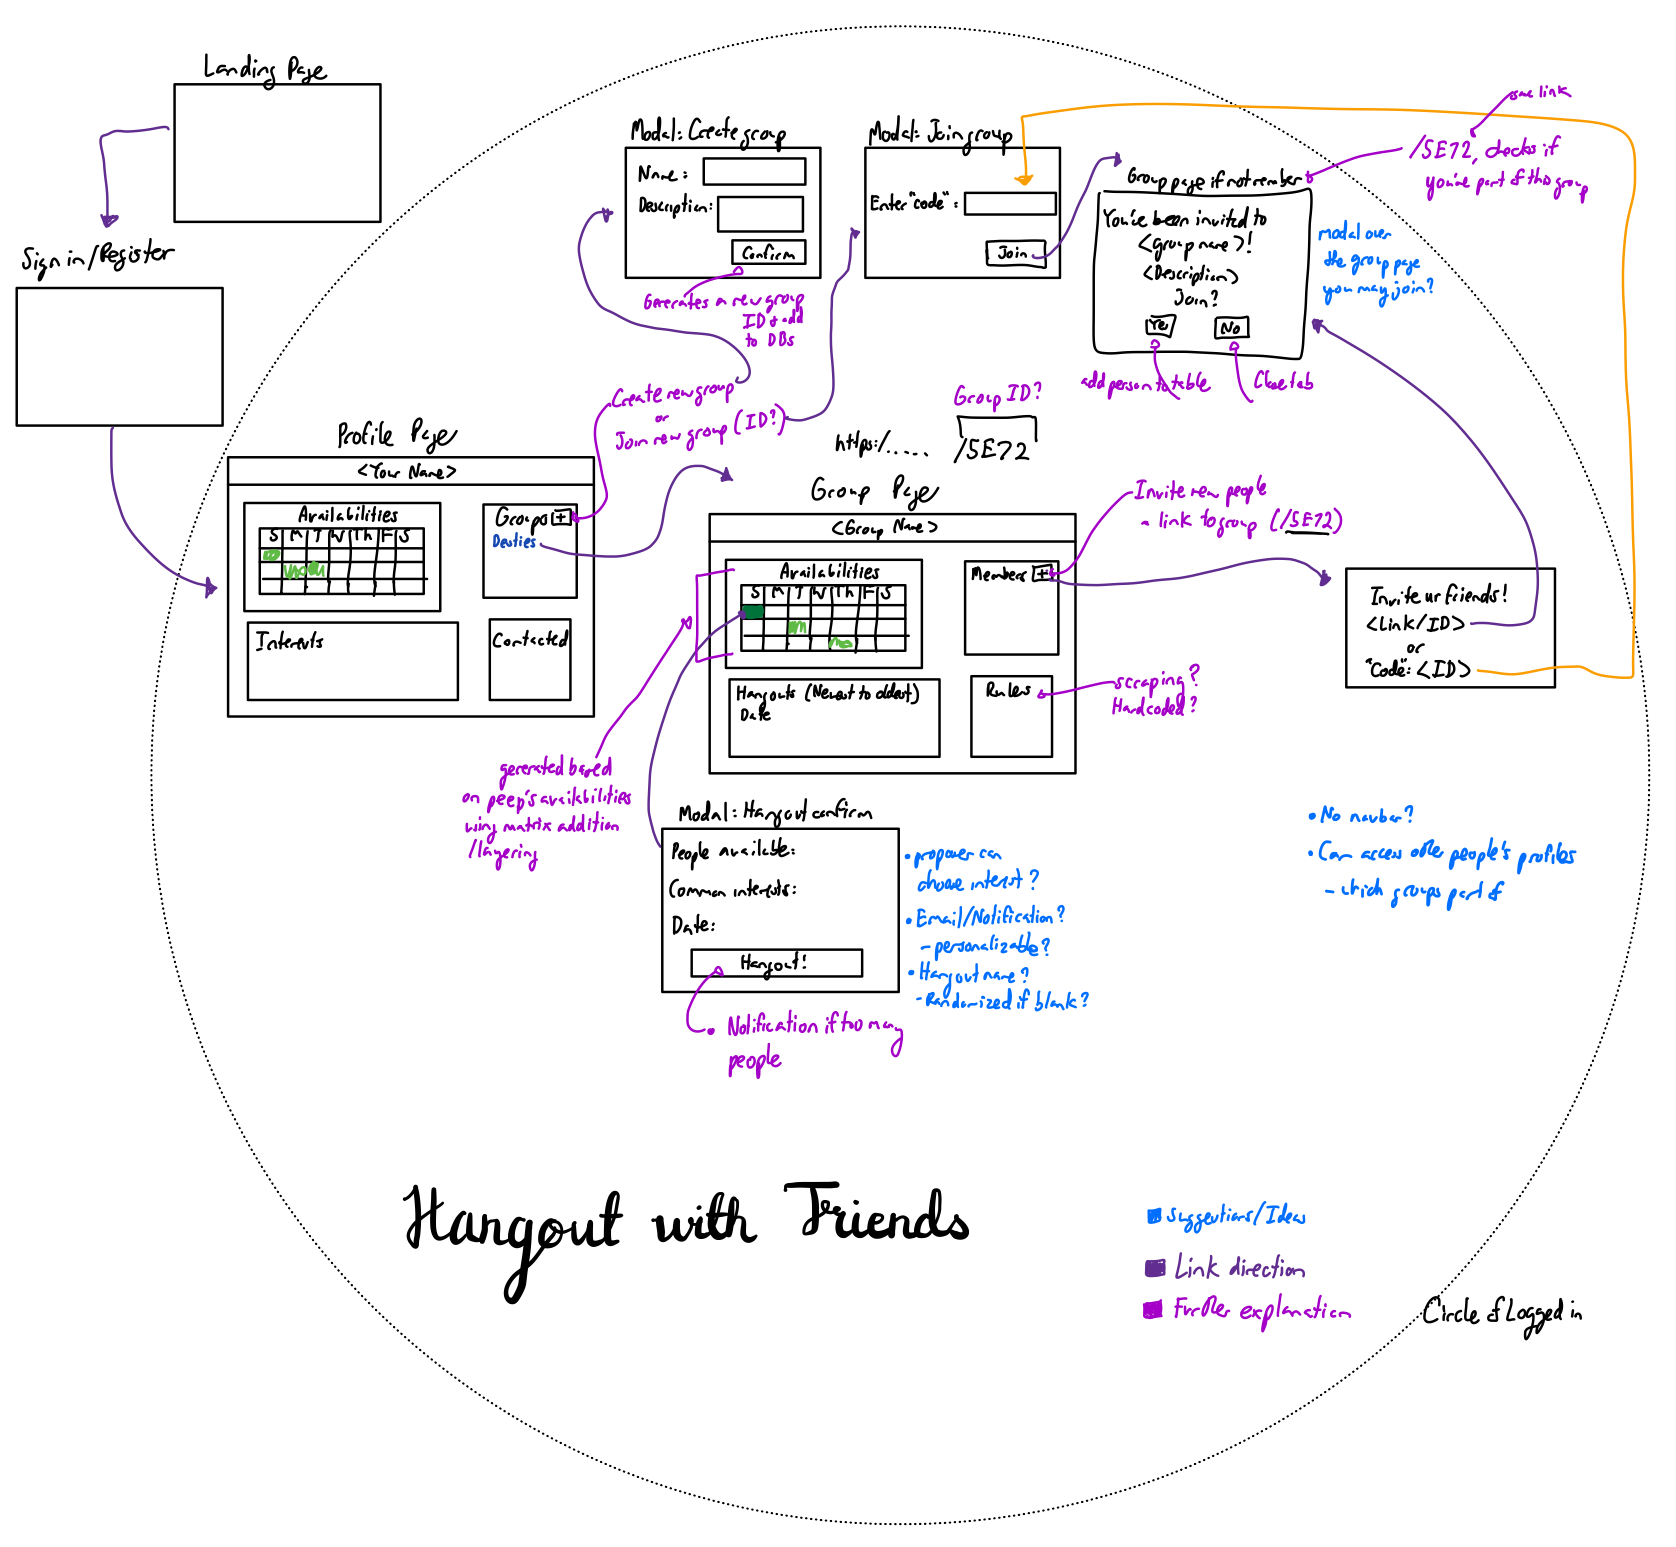 Landing Page
Sign in/Register
Modal: Create group
Name:
Description:
Confirm
Generates a new group
ID & add
to DBs
Modal: Join group
Enter "code":
Join
same link
/5E72, checks if
you're part of this group
Group page if not member
You've been invited to
<group name>!
<Description>
Join?
Yes
No
add person to table
Close tab
modal over
the group page
you may join?
Create new group
or
Join new group (ID?)
Group ID?
https:/.....
/5E72
Profile Page
<Your Name>
Availabilities
S M T W Th F S
Groups +
Interests
Contacted
Group Page
<Group Name>
Availabilities
S M T W Th F S
Members +
Hangouts (Newest to oldest)
Date
Rules
Invite new people
a link to group (/5E72)
Invite ur friends!
<Link/ID>
or
"Code": <ID>
scraping?
Hardcoded?
generated based
on peep's availabilities
using matrix addition
/layering
Modal: Hangout confirm
People available:
Common interests:
Date:
Hangout!
• Notification if too many
people
• proposer can
choose interest?
• Email/Notification?
- personalizable?
• Hangout name?
- Randomized if blank?
• No navbar?
• Can access other people's profiles
- which groups part of
Hangout with Friends
Suggestions/Ideas
Link direction
Further explanation
Circle of Logged in